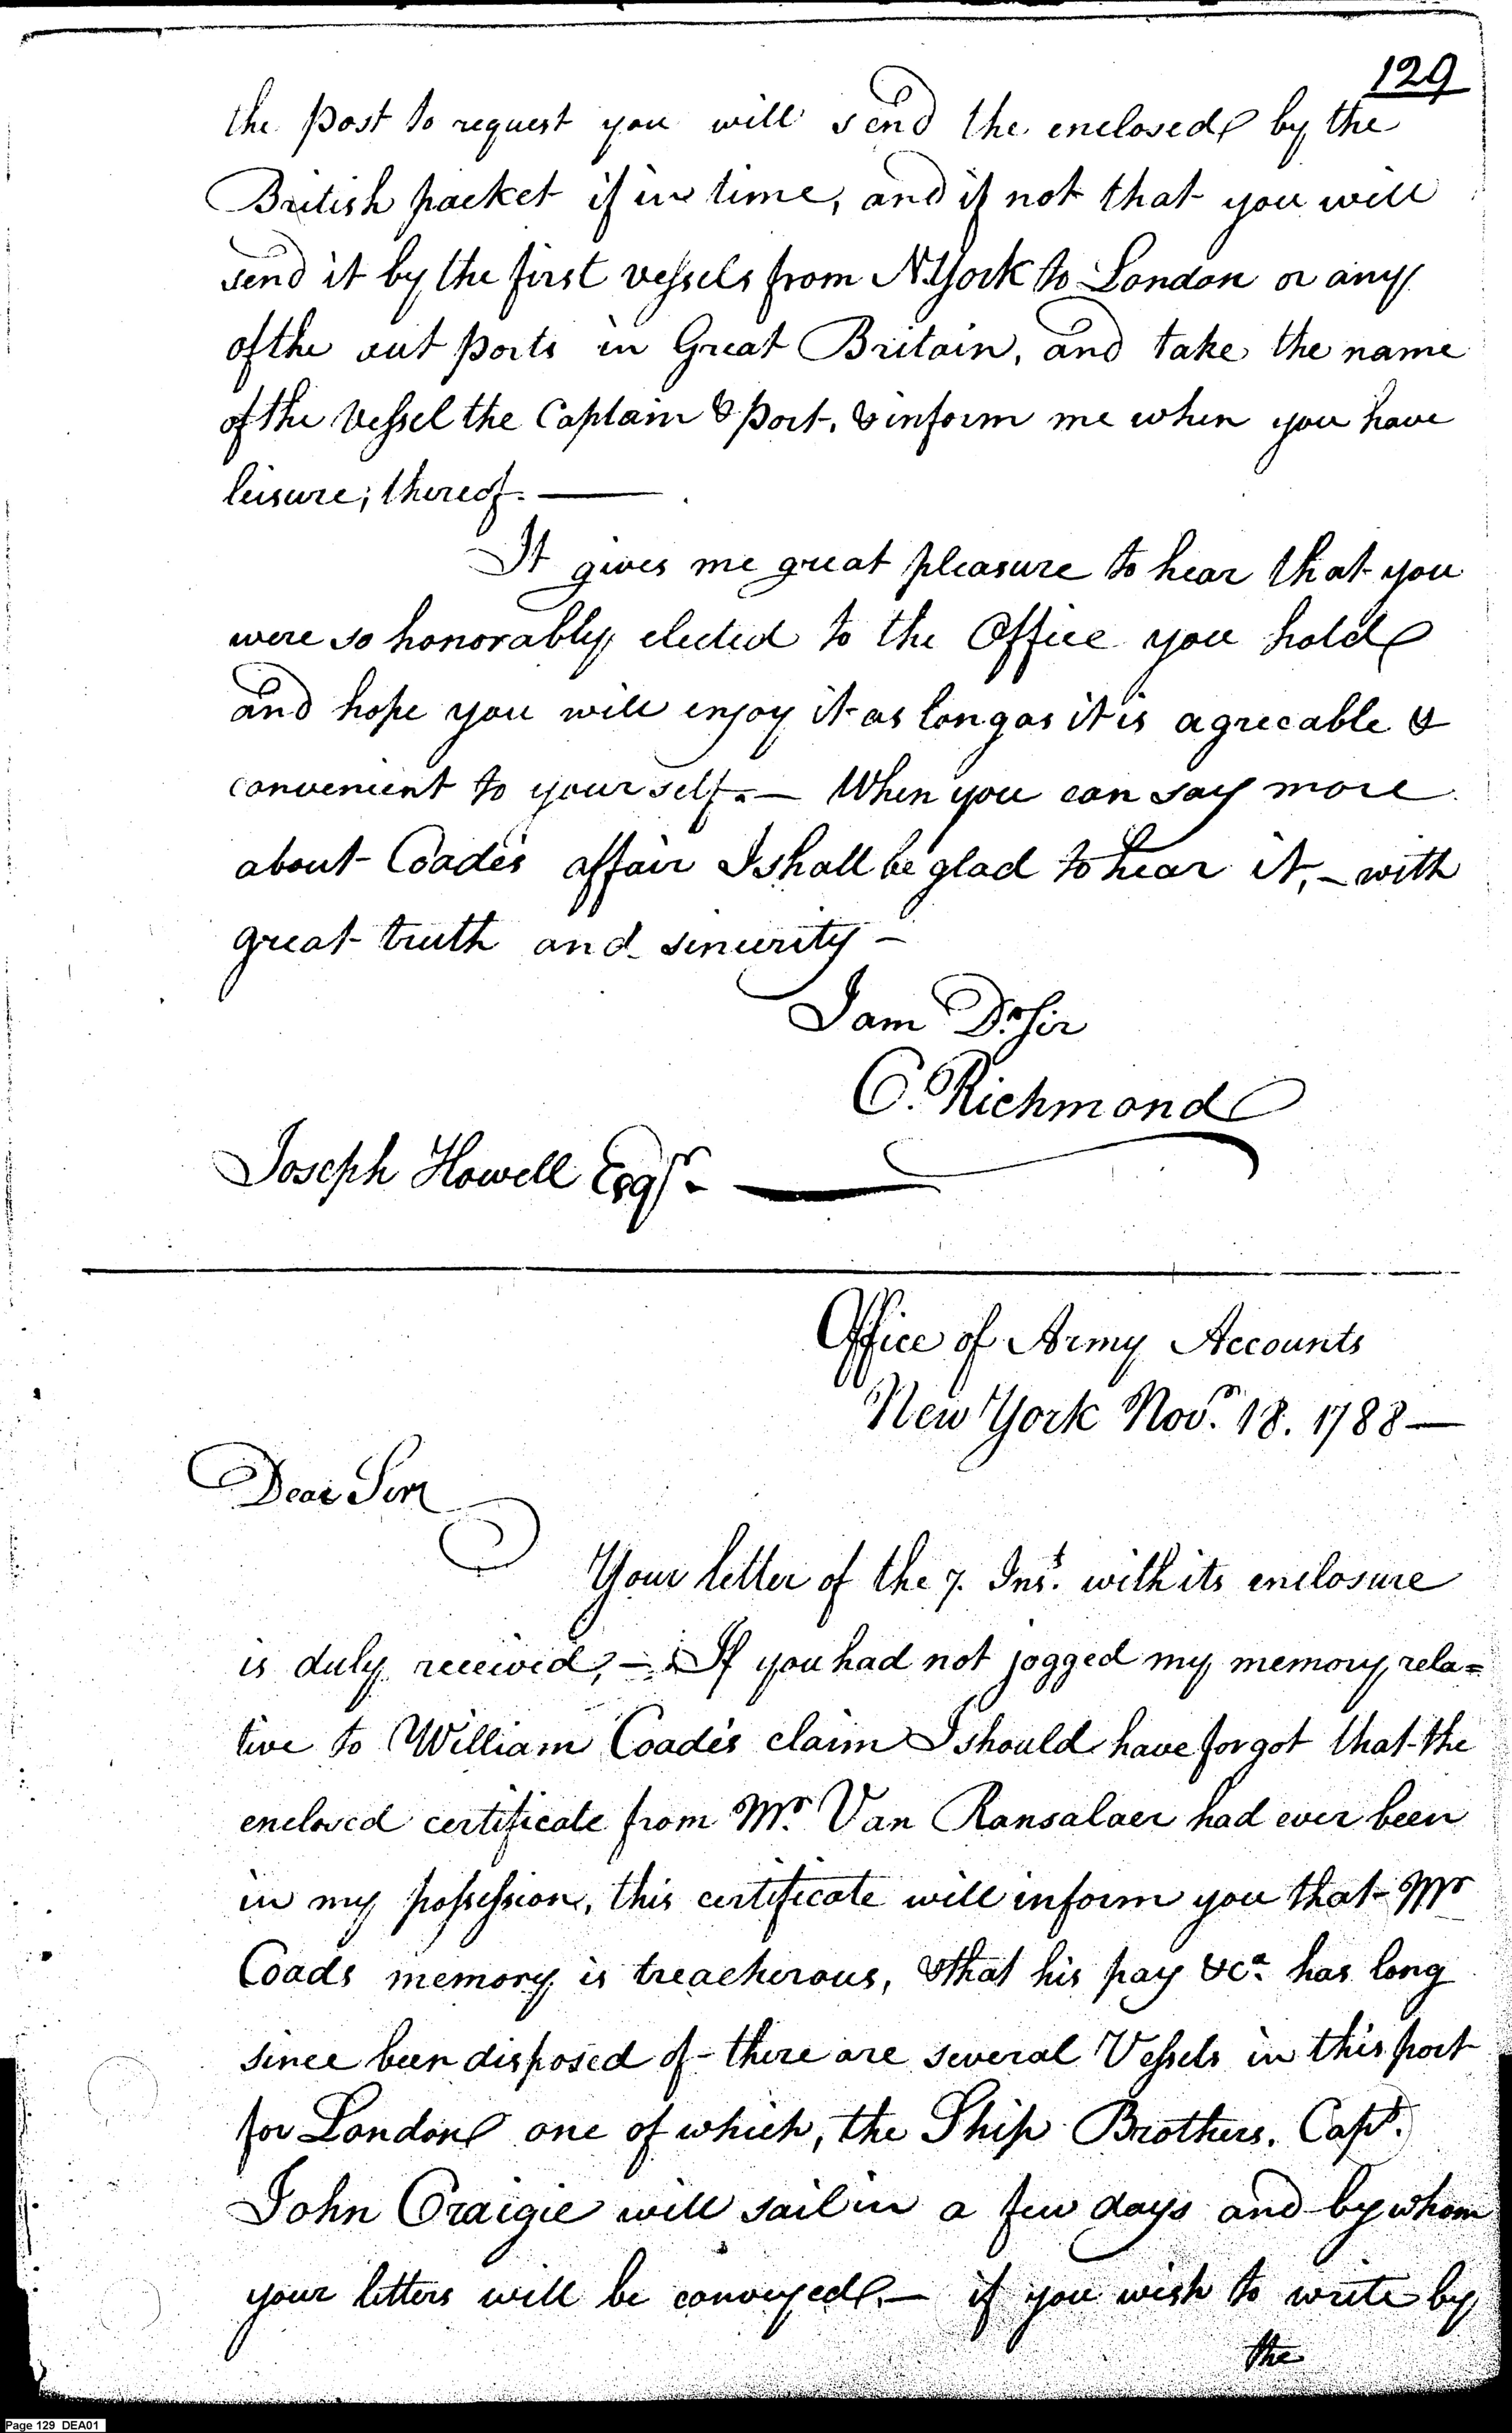 129
the post to request you will send the enclosed by the
British packet if in time, and if not that you will
send it by the first vessels from N.York to London or any
of the out ports in Great Britain, and take the name
of the Vessel the Captain & Port, & inform me when you have
leisure; thereof. —
It gives me great pleasure to hear that you
were so honorably elected to the Office you hold
and hope you will enjoy it as long as it is agreeable &
convenient to yourself. — When you can say more
about Coade's affair I shall be glad to hear it, – with
great truth and sincerity –
I am Dr. Sir
C. Richmond
Joseph Howell Esqr. —
Office of Army Accounts
New York Novr. 18. 1788 —
Dear Sir
Your letter of the 7. Inst. with its enclosure
is duly received, — If you had not jogged my memory, rela=
tive to William Coade's claim I should have forgot that the
enclosed certificate from Mr. Van Ransalaer had ever been
in my possession, this certificate will inform you that Mr
Coads memory is treacherous, & that his pay &ca. has long
since been disposed of – there are several Vessels in this port
for London one of which, the Ship Brothers. Capt.
John Craigie will sail in a few days and by whom
your letters will be conveyed. — if you wish to write by
the
Page 129 DEA01